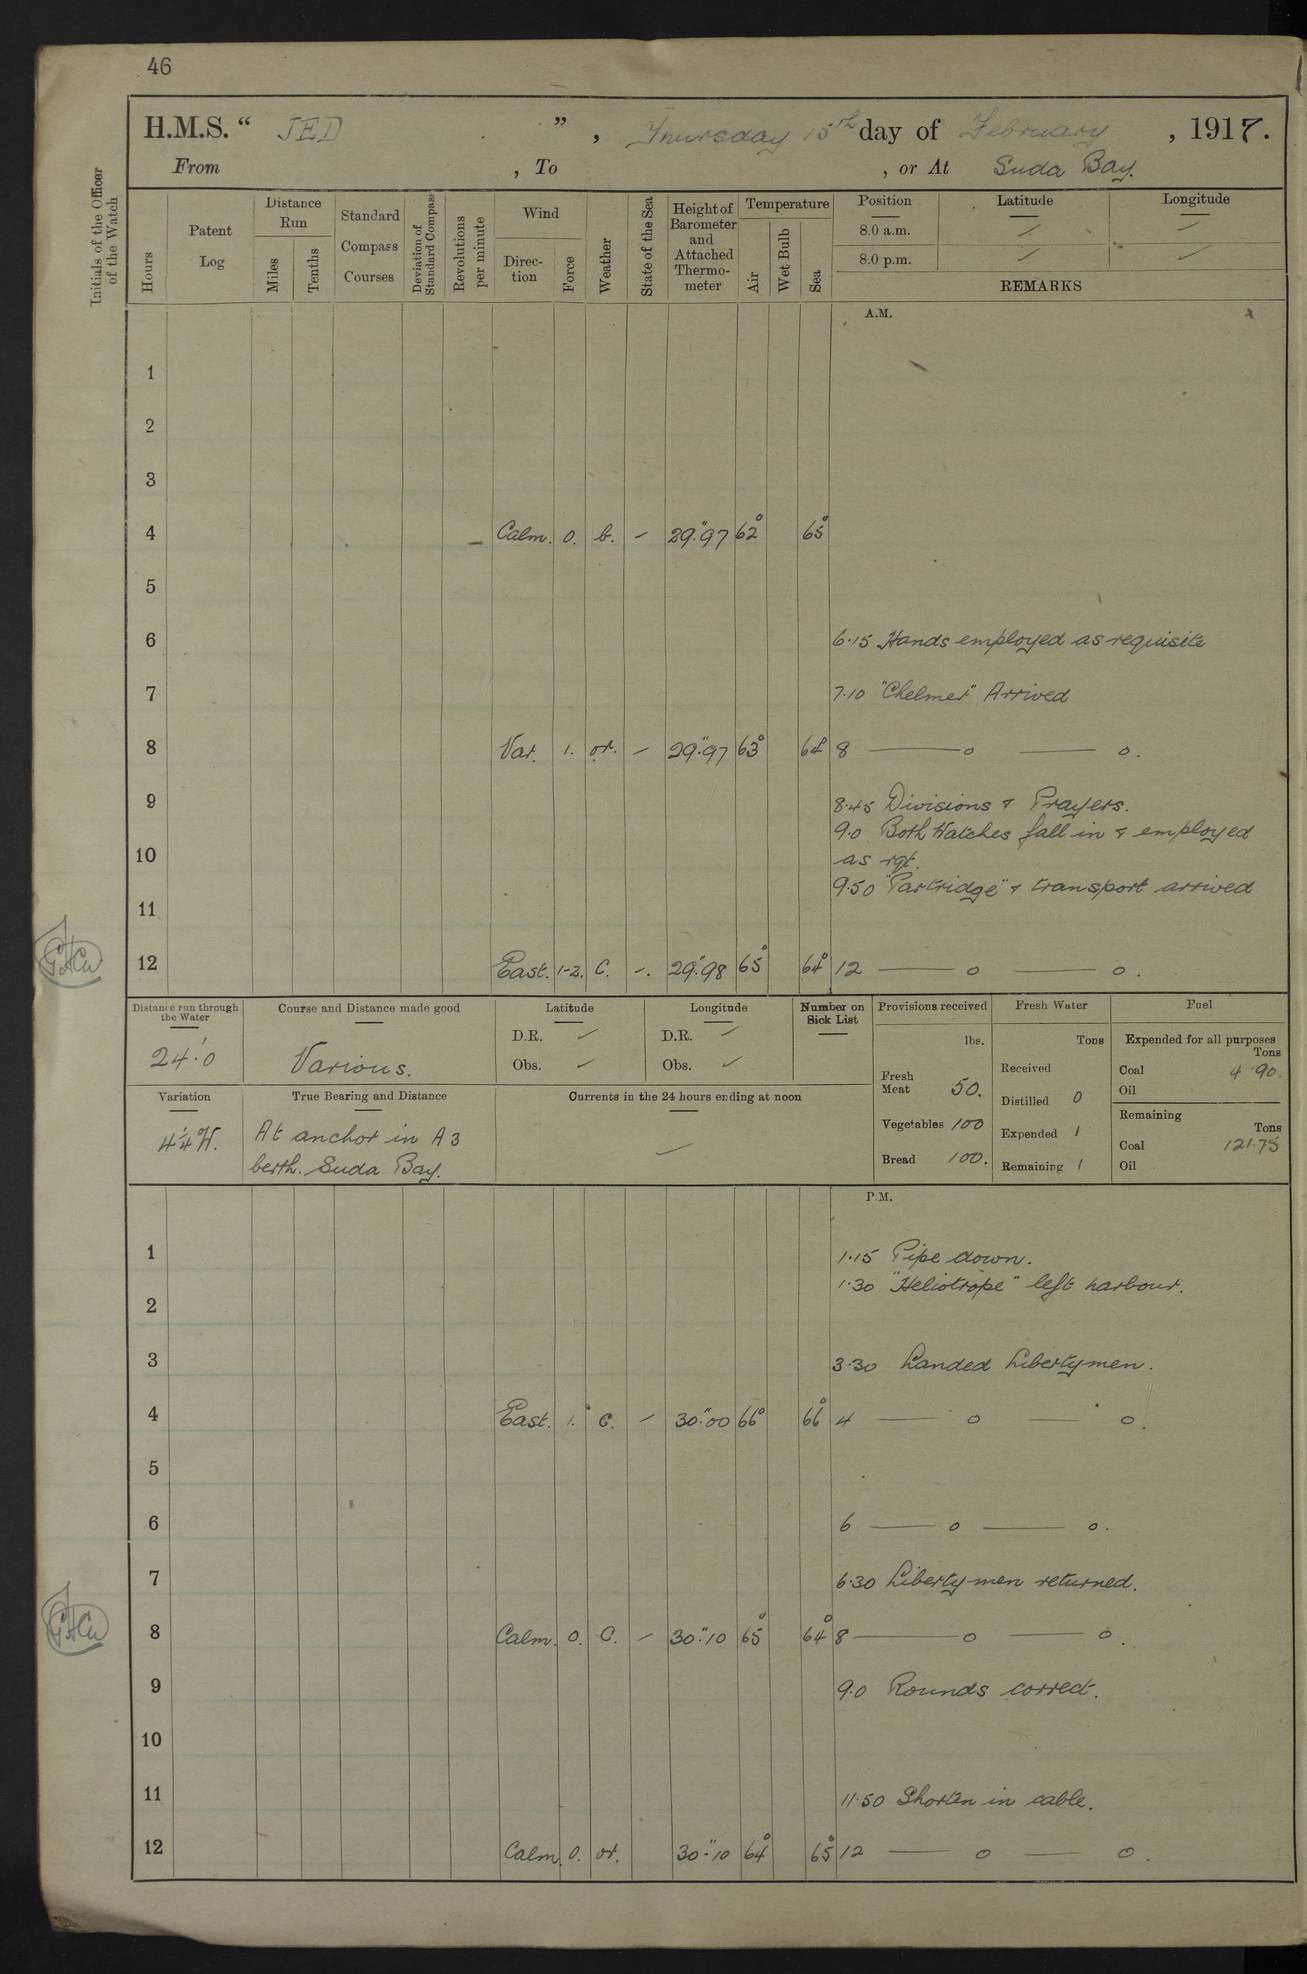 46
H.M.S. “ JED ” , Thursday 15th day of February , 1917.
From , To , or At Suda Bay.
Initials of the Officer of the Watch
Hours
Patent Log
Distance Run
Miles
Tenths
Standard Compass Courses
Deviation of Standard Compass
Revolutions per minute
Wind
Direction
Force
Weather
State of the Sea
Height of Barometer and Attached Thermometer
Temperature
Air
Wet Bulb
Sea
Position Latitude Longitude
8.0 a.m.
8.0 p.m.
REMARKS
A.M.
1
2
3
4 Calm. 0. b. – 29".97 62° 65°
5
6 6.15 Hands employed as requisite
7 7.10 "Chelmer" Arrived
8 Var. 1. or. – 29".97 63° 64° 8 —— o —— o.
9 8.45 Divisions & Prayers.
9.0 Both Watches fall in & employed
10 as rqt.
9.50 "Partridge" & transport arrived
11
12 East. 1-2. C. –. 29".98 65° 64° 12 —— o —— o.
Distance run through the Water
24'.0
Course and Distance made good
Various.
Latitude
D.R.
Obs.
Longitude
D.R.
Obs.
Number on Sick List
Provisions received
lbs.
Fresh Meat 50.
Vegetables 100
Bread 100.
Fresh Water
Tons
Received
Distilled 0
Expended 1
Remaining 1
Fuel
Expended for all purposes
Tons
Coal 4.90.
Oil
Remaining
Tons
Coal 121.75
Oil
Variation
4¼°W.
True Bearing and Distance
At anchor in A3
berth. Suda Bay.
Currents in the 24 hours ending at noon
P.M.
1 1.15 Pipe down.
1.30 "Heliotrope" left harbour.
2
3 3.30 Landed Libertymen.
4 East. 1. c. – 30".00 66° 66° 4 —— o —— o.
5
6 6 —— o —— o.
7 6.30 Liberty men returned.
8 Calm. 0. C. – 30".10 65° 64° 8 —— o —— o.
9 9.0 Rounds correct.
10
11 11.50 Shorten in cable.
12 Calm. 0. or. 30".10 64° 65° 12 —— o —— o.